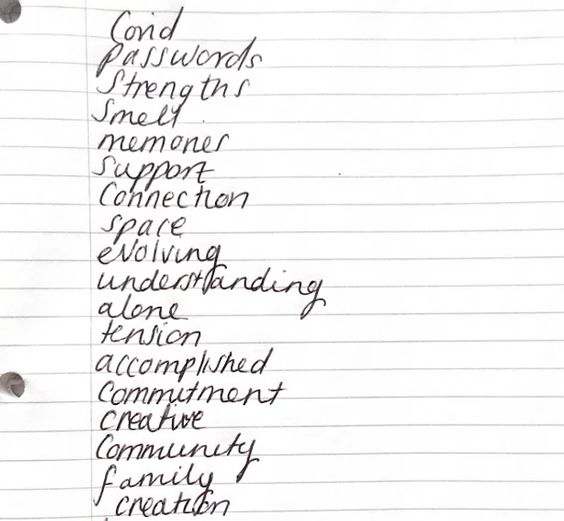 Covid
Passwords
Strengths
Smell
memories
Support
Connection
space
evolving
understanding
alone
tension
accomplished
Commitment
creative
Community
family
creation